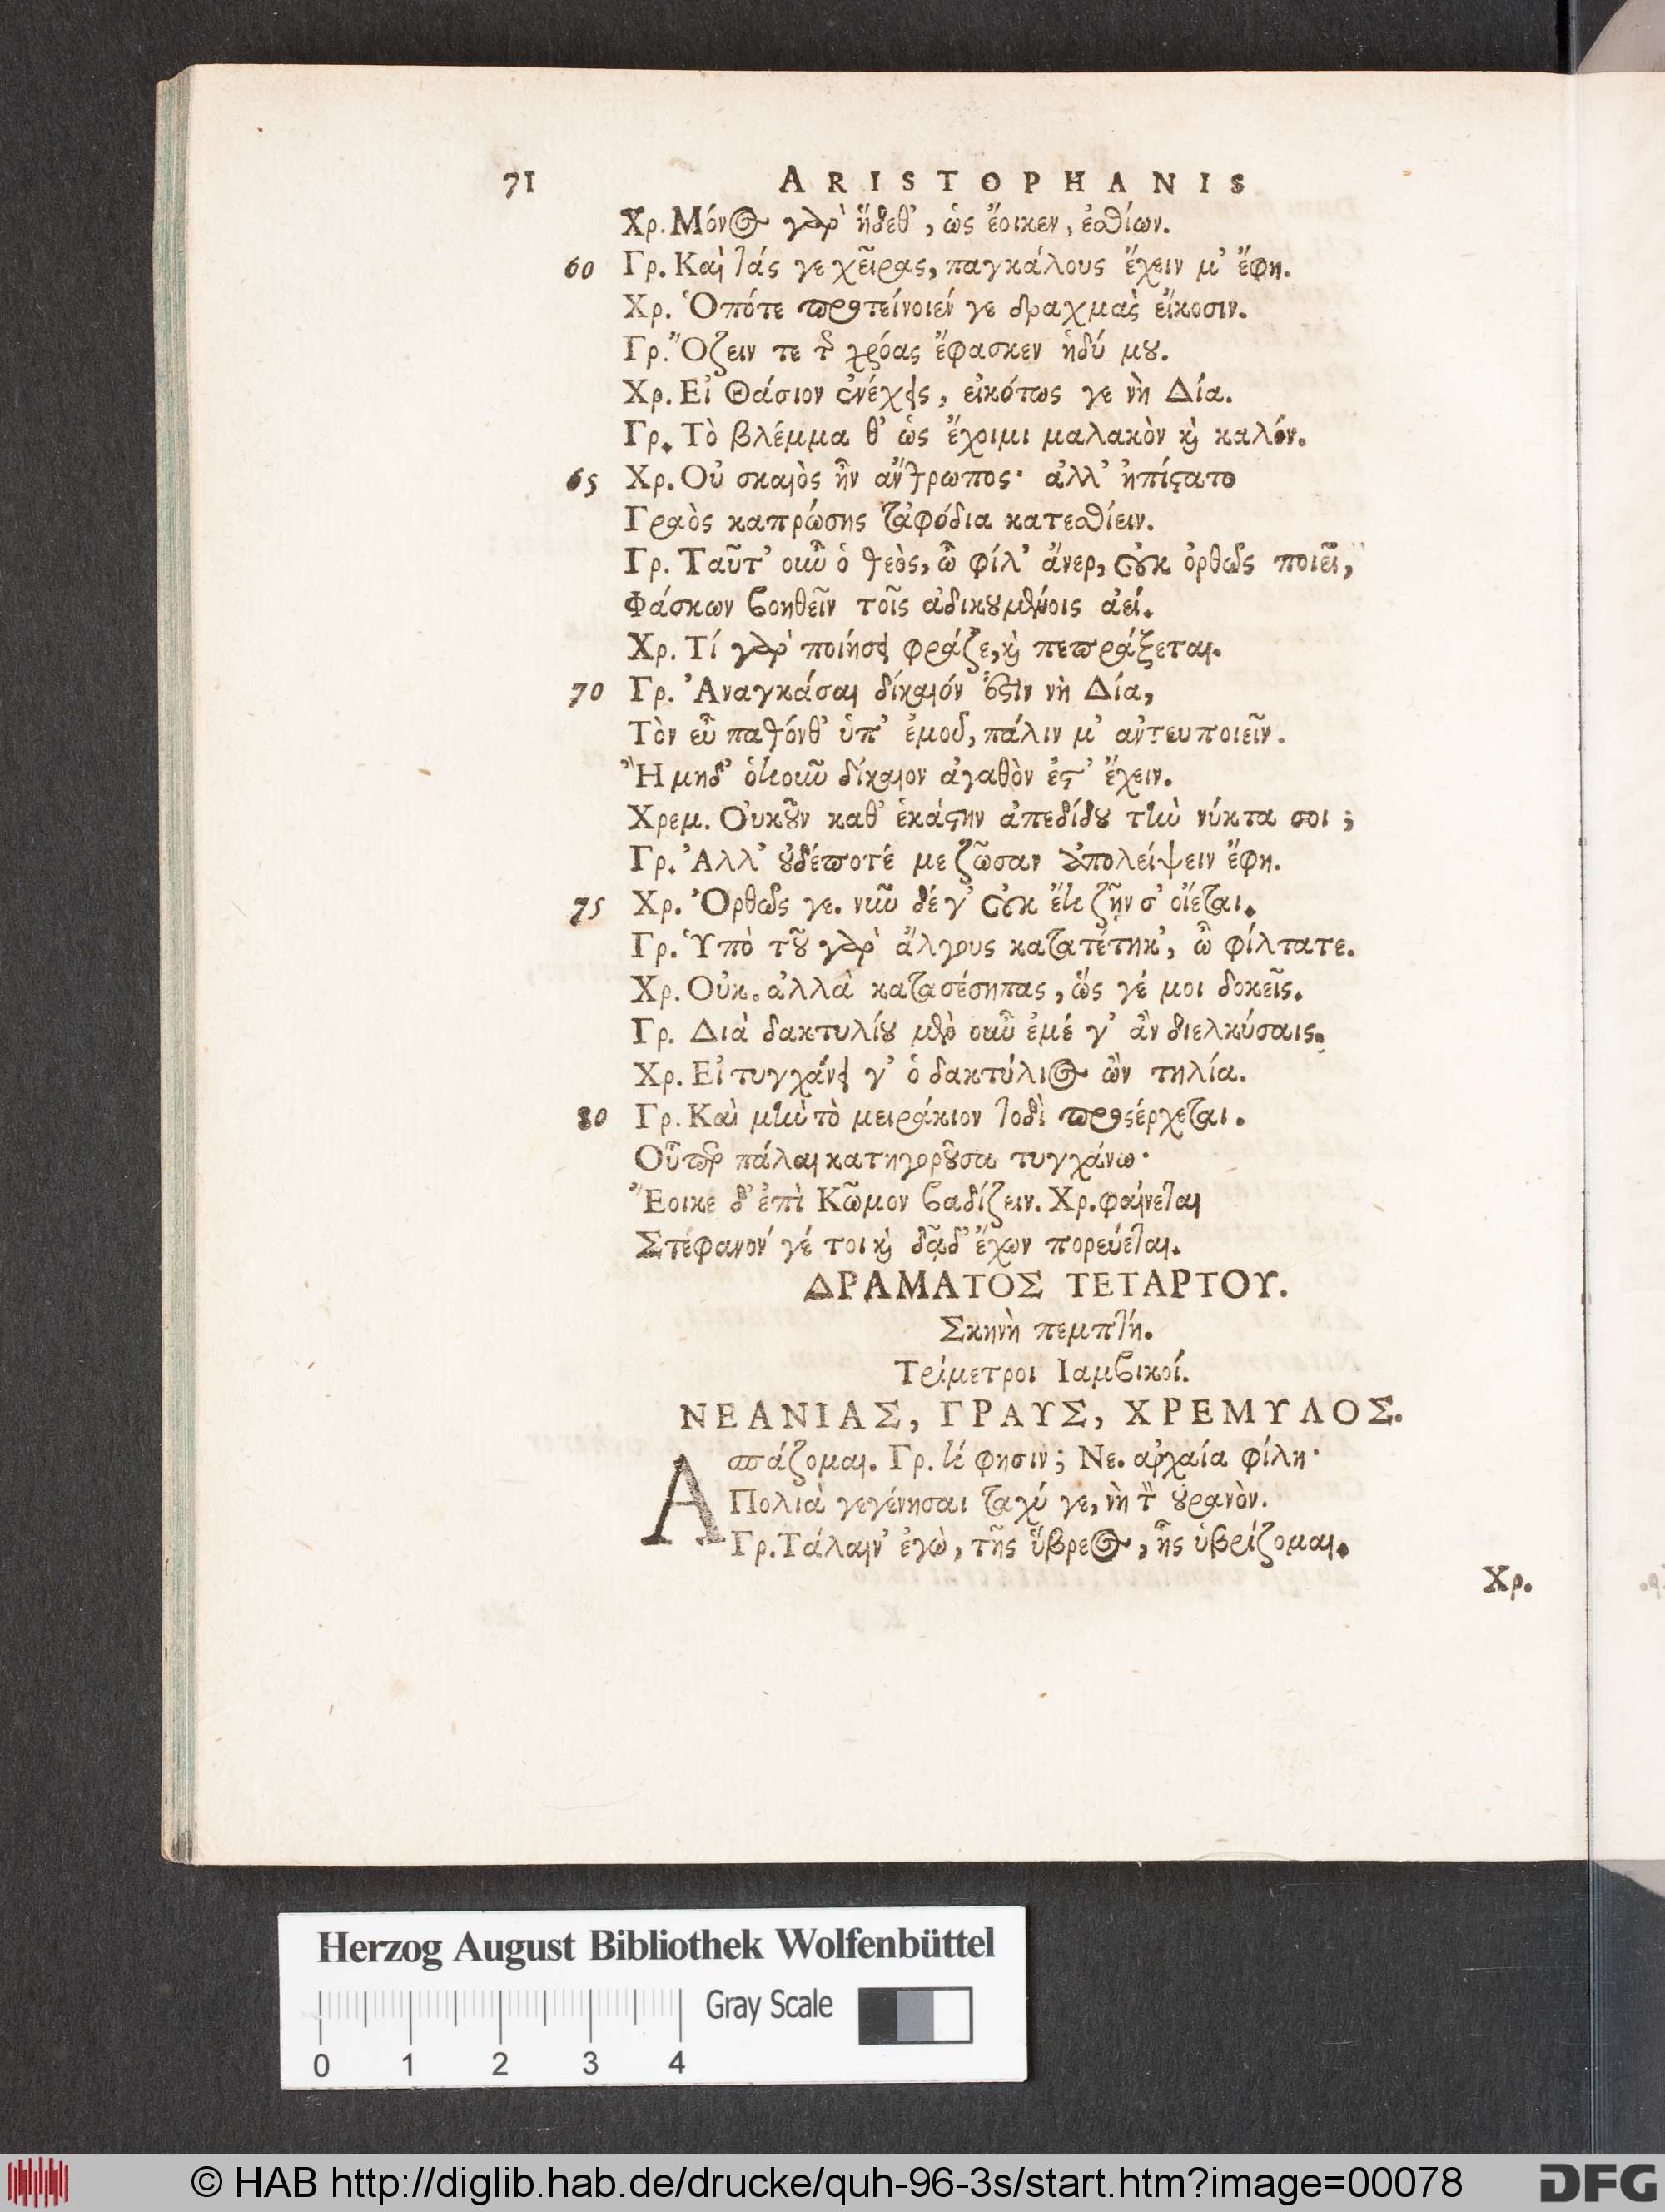 71 ARISTOPHANIS
Χρ. Μόνος γὰρ ἥδεθ', ὡς ἔοικεν, ἐσθίων.
60 Γρ. Καὶ τάς γε χεῖρας, παγκάλους ἔχειν μ' ἔφη.
Χρ. Ὁπότε προτείνοιέν γε δραχμὰς εἴκοσιν.
Γρ. Ὄζειν τε τῆς χρόας ἔφασκεν ἡδύ μου.
Χρ. Εἰ Θάσιον ἐνέχεις, εἰκότως γε νὴ Δία.
Γρ. Τὸ βλέμμα θ' ὡς ἔχοιμι μαλακὸν καὶ καλόν.
65 Χρ. Οὐ σκαιὸς ἦν ἄνθρωπος· ἀλλ' ἠπίστατο
Γραὸς καπρώσης τἀφόδια κατεσθίειν.
Γρ. Ταῦτ' οὖν ὁ θεὸς, ὦ φίλ' ἄνερ, οὐκ ὀρθῶς ποιεῖ,
Φάσκων βοηθεῖν τοῖς ἀδικουμένοις ἀεί.
Χρ. Τί γὰρ ποιήσει φράζε, καὶ πεπράξεται.
70 Γρ. Ἀναγκάσαι δίκαιόν ἐστιν νὴ Δία,
Τὸν εὖ παθόνθ' ὑπ' ἐμοῦ, πάλιν μ' ἀντευποιεῖν.
Ἢ μηδ' ὁτιοῦν δίκαιον ἀγαθὸν ἐστ' ἔχειν.
Χρεμ. Οὐκοῦν καθ' ἑκάστην ἀπεδίδου τὴν νύκτα σοι;
Γρ. Ἀλλ' οὐδέποτέ με ζῶσαν ἀπολείψειν ἔφη.
75 Χρ. Ὀρθῶς γε. νῦν δέ γ' οὐκ ἔτι ζῆν σ' οἴεται.
Γρ. Ὑπὸ τοῦ γὰρ ἄλγους κατατέτηκ', ὦ φίλτατε.
Χρ. Οὐκ. ἀλλὰ κατασέσηπας, ὥς γέ μοι δοκεῖς.
Γρ. Διὰ δακτυλίου μὲν οὖν ἐμέ γ' ἂν διελκύσαις.
Χρ. Εἰ τυγχάνει γ' ὁ δακτύλιος ὢν τηλία.
80 Γρ. Καὶ μὴν τὸ μειράκιον τοδὶ προσέρχεται.
Οὗπερ πάλαι κατηγοροῦσα τυγχάνω·
Ἔοικε δ' ἐπὶ Κῶμον βαδίζειν. Χρ. φαίνεται
Στέφανόν γέ τοι καὶ δᾷδ' ἔχων πορεύεται.
ΔΡΑΜΑΤΟΣ ΤΕΤΑΡΤΟΥ.
Σκηνὴ πεμπτή.
Τρίμετροι Ιαμβικοί.
ΝΕΑΝΙΑΣ, ΓΡΑΥΣ, ΧΡΕΜΥΛΟΣ.
Ασπάζομαι. Γρ. τί φησιν; Νε. ἀρχαία φίλη·
Πολιὰ γεγένησαι ταχύ γε, νὴ τὸν οὐρανὸν.
Γρ. Τάλαιν' ἐγὼ, τῆς ὕβρεος, ἧς ὑβρίζομαι.
Χρ.
Herzog August Bibliothek Wolfenbüttel
Gray Scale
0 1 2 3 4
© HAB http://diglib.hab.de/drucke/quh-96-3s/start.htm?image=00078
DFG